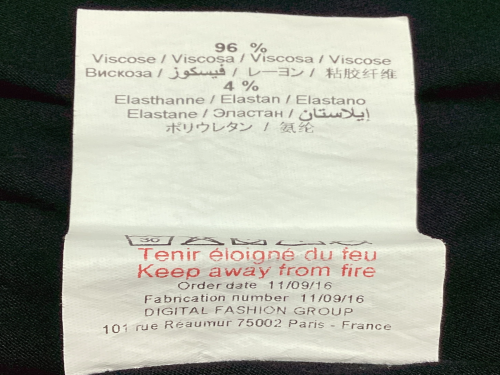 96 %
Viscose / Viscosa / Viscosa / Viscose
Вискоза / فيسكوز / レーヨン / 粘胶纤维
4 %
Elasthanne / Elastan / Elastano
Elastane / Эластан / إيلاستان
ポリウレタン / 氨纶
30
Tenir éloigné du feu
Keep away from fire
Order date 11/09/16
Fabrication number 11/09/16
DIGITAL FASHION GROUP
101 rue Réaumur 75002 Paris - France